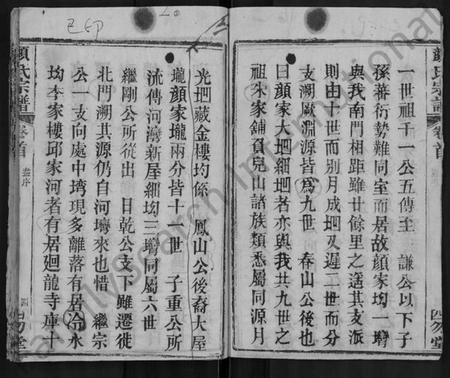 顏氏宗譜
卷首
四勿堂
一世祖千一公五傳至　謙公以下子
孫蕃衍勢難同室而居故顏家坳一聯
與我南門相距雖廿餘里之遙其支派
則由十世而別月成垇又遲二世而分
支溯厥淵源皆為九世　春山公後也
曰顏家大垇細垇者亦與我共九世之
祖朱家鋪負兒山諸族類悉屬同源月
光垇藏金樓均係　鳳山公後裔大屋
壠顏家壠兩分皆十一世　子重公所
流傳河灣新屋細坳三聯同屬六世
繼剛公所從出　日乾公支下雖遷徙
北門溯其源仍自河壋來也惜　繼宗
公一支向處中塆現多離落有居冷水
坳本家樓邱家河者有居廻龍寺庫十
顏氏宗譜
卷首
序
四
四勿堂
已印